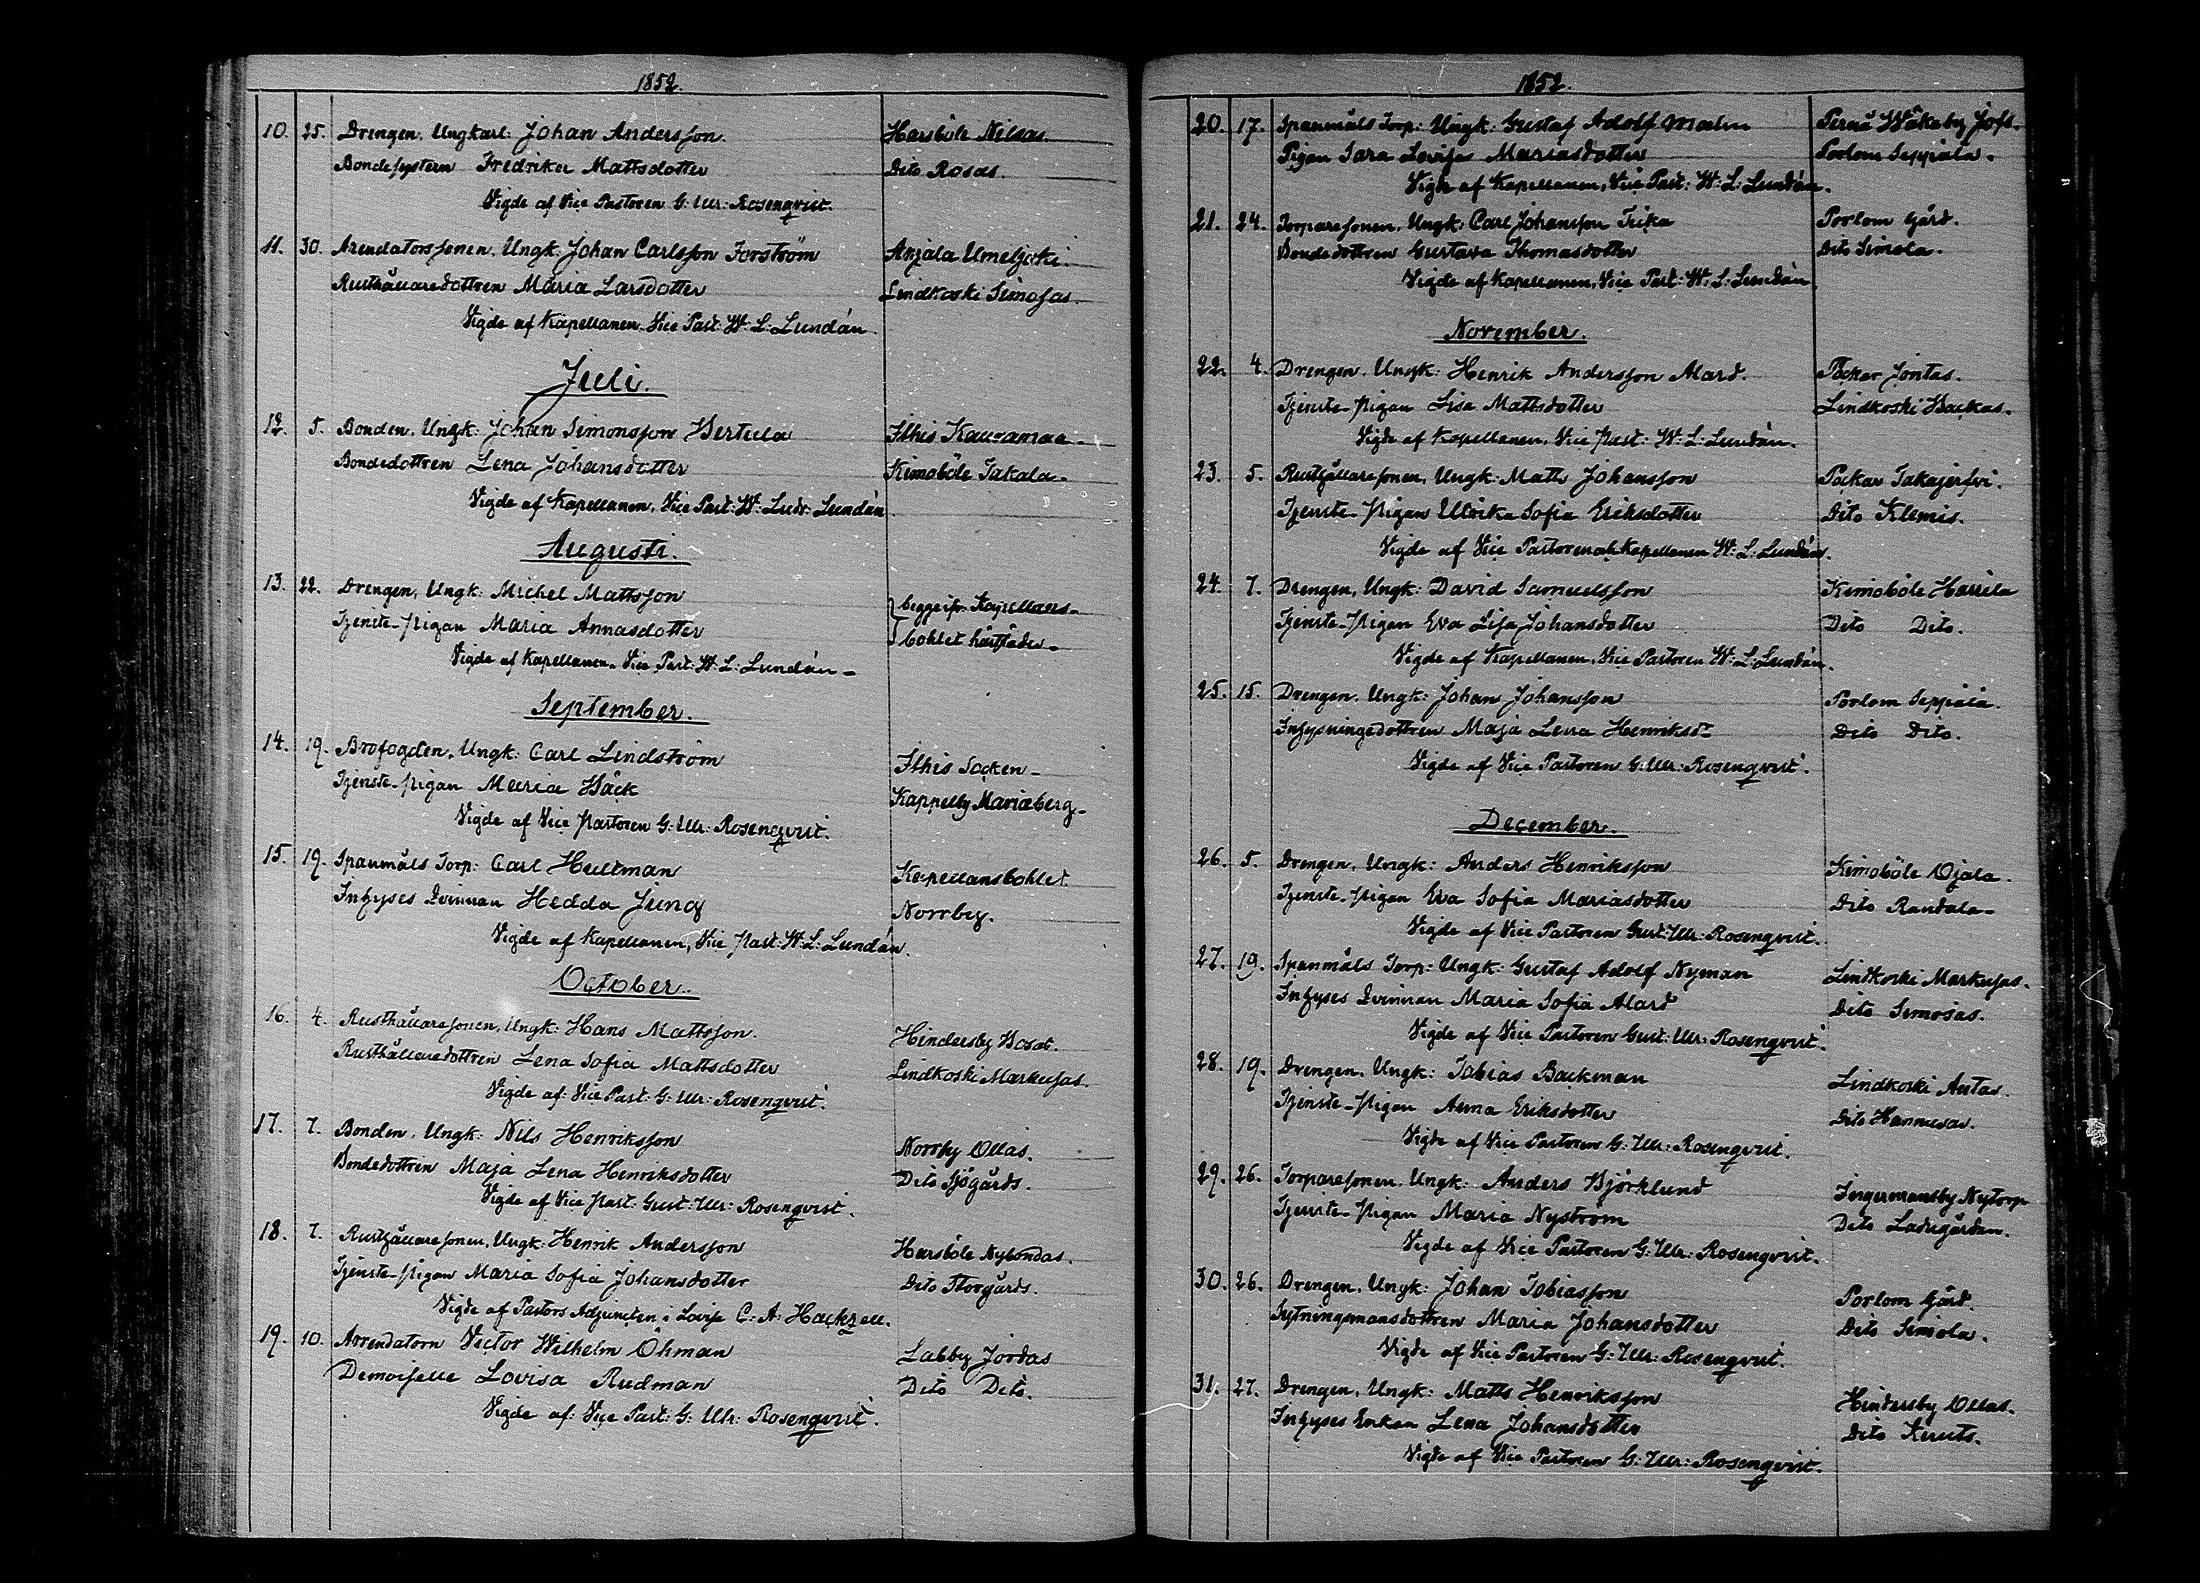 1852.
10. 25. Drengen, Ungkarl: Johan Andersson. Harsböle Nilsas.
Bondesystern Fredrika Mattsdotter Dito Rosas.
Vigde af Vice Pastoren G: Ulr: Rosenqvist.
11. 30. Arendatorssonen, Ungk: Johan Carlsson Forström Anjala Umeljoki.
Rusthållaredottren Maria Larsdotter Lindkoski Simosas.
Vigde af Kapellanen, Vice Past: W: L: Lundán
Juli.
12. 5. Bonden, Ungk: Johan Simonsson Bertula Ithis Kausamaa
Bondedottren Lena Johansdotter Kimoböle Takala.
Vigde af Kapellanen, Vice Past: W: Ludv: Lundán
Augusti.
13. 22. Drengen, Ungk: Michel Mattsson begge ifr. Kapellans-
Tjenste-Pigan Maria Annasdotter bohlet härstädes.
Vigde af Kapellanen, Vice Past: W: L: Lundán
September.
14. 19. Brofogden, Ungk: Carl Lindström Ithis Socken
Tjenste-Pigan Maria Bäck Kappelby Mariæberg
Vigde af Vice Pastoren G: Ulr: Rosenqvist.
15. 19. Spanmåls Torp: Carl Hultman Kapellansbohlet
Inhyses Qvinnan Hedda Jung Norrby.
Vigde af Kapellanen, Vice Past: W: L: Lundán.
October.
16. 4. Rusthållaresonen, Ungk: Hans Mattsson. Hindersby Bosas.
Rusthållaredottren Lena Sofia Mattsdotter Lindkoski Markusas.
Vigde af: Vice Past: G: Ulr: Rosenqvist.
17. 7. Bonden, Ungk: Nils Henriksson Norrby Ollas.
Bondedottren Maja Lena Henriksdotter Dito Sjögårds.
Vigde af Vice Past: Gust: Ulr: Rosenqvist.
18. 7. Rusthållaresonen, Ungk: Henrik Andersson Harsböle Nybondas.
Tjenste-Pigan Maria Sofia Johansdotter Dito Storgårds.
Vigde af Pastors Adjuncten i Lovisa C: A: Hackzell.
19. 10. Arrendatorn Victor Wilhelm Öhman Labby Jordas
Demoiselle Lovisa Rudman Dito Dito.
Vigde af: Vice Past: G: Ulr: Rosenqvist.
1852.
20. 17. Spanmåls Torp: Ungk: Gustaf Adolf Malm Perna Wåkaby
Pigan Sara Lovisa Mariasdotter Porlom Seppälä.
Vigde af Kapellanen, Vice Past: W: L: Lundán.
21. 24. Torparesonen, Ungk: Carl Johansson Frika Porlom Gård.
Bondedottren Gustava Thomasdotter Dito Simola.
Vigde af Kapellanen, Vice Past: W: L: Lundán
November.
22. 4. Drengen, Ungk: Henrik Andersson Alard. Päckar Jontas.
Tjenste-Pigan Lisa Mattsdotter Lindkoski Backas.
Vigde af Kapellanen, Vice Past: W: L: Lundán.
23. 5. Rusthållaresonen, Ungk: Matts Johansson Päckar Takajerfvi.
Tjenste-Pigan Ulrika Sofia Eriksdotter Dito Klemis.
Vigde af Vice Pastoren och Kapellanen W: L: Lundán.
24. 7. Drengen, Ungk: David Samuelsson Kimoböle Harrila
Tjenste-Pigan Eva Lisa Johansdotter Dito Dito.
Vigde af Kapellanen, Vice Pastoren W: L: Lundán.
25. 15. Drengen, Ungk: Johan Johansson Porlom Seppälä.
Inhysningedottren Maja Lena Henriksd: Dito Dito.
Vigde af Vice Pastoren G: Ulr: Rosenqvist.
December.
26. 5. Drengen, Ungk: Anders Henriksson Kimoböle Ojala.
Tjenste-Pigan Eva Sofia Mariasdotter Dito Randala
Vigde af Vice Pastoren Gust: Ulr: Rosenqvist.
27. 19. Spanmåls Torp: Ungk: Gustaf Adolf Nyman Lindkoski Markusas.
Inhyses Qvinnan Maria Sofia Alard Dito Simosas.
Vigde af Vice Pastoren Gust: Ulr: Rosenqvist.
28. 19. Drengen, Ungk: Tobias Backman Lindkoski Antas.
Tjenste-Pigan Anna Eriksdotter Dito Hannusas.
Vigde af Vice Pastoren G: Ulr: Rosenqvist.
29. 26. Torparesonen, Ungk: Anders Björklund Ingermansby Nytorp
Tjenste-Pigan Maria Nyström Dito Ladugården.
Vigde af Vice Pastoren G: Ulr: Rosenqvist.
30. 26. Drengen, Ungk: Johan Tobiasson Porlom Gård.
Sytningsmansdottren Maria Johansdotter Dito Simola.
Vigde af Vice Pastoren G: Ulr: Rosenqvist.
31. 27. Drengen, Ungk: Matts Henriksson Hindersby Ollas.
Inhyses Enkan Lena Johansdotter Dito Knuts.
Vigde af Vice Pastoren G: Ulr: Rosenqvist.